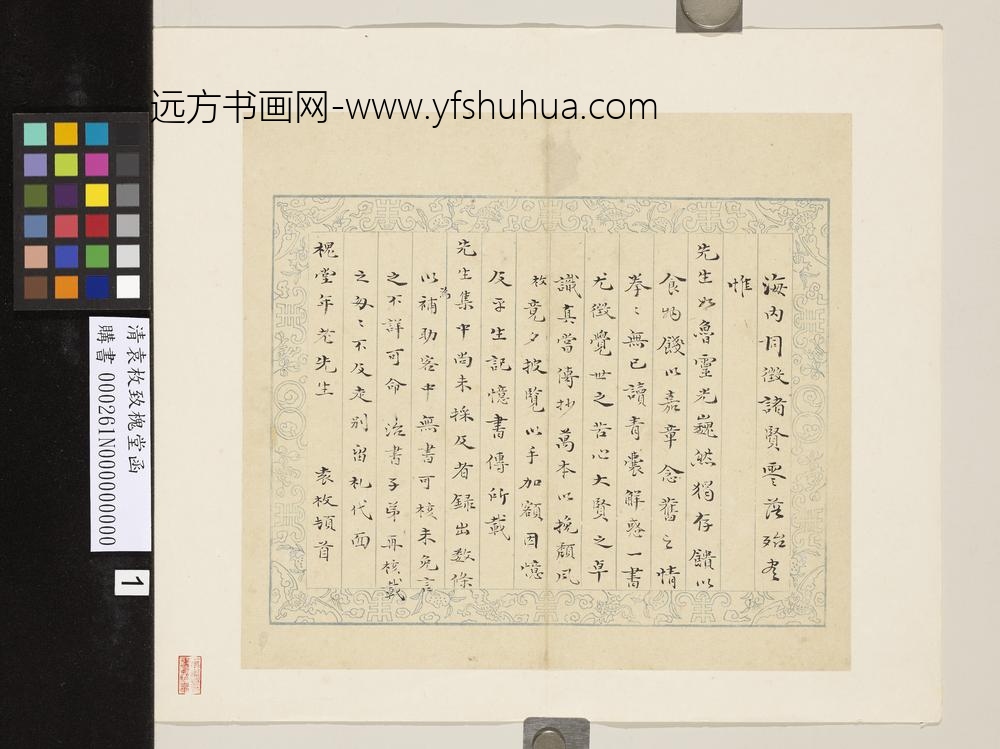 远方书画网-www.yfshuhua.com
海內同徵諸賢零落殆盡
惟
先生如魯靈光巍然獨存饋以
食物餽以嘉章念舊之情
拳〻無已讀青囊解惑一書
尤徵覺世之苦心大賢之卓
識真當傳抄萬本以挽頹風
枚竟夕披覽以手加額因憶
及平生記憶書傳所載
先生集中尚未採及者錄出數條
以補助客中無書可核未免言
之不詳可命 治書子弟再核載
為
之匆〻不及走別留札代面
槐堂年老先生 袁枚頓首
清袁枚致槐堂函
購書 000261N000000000
1